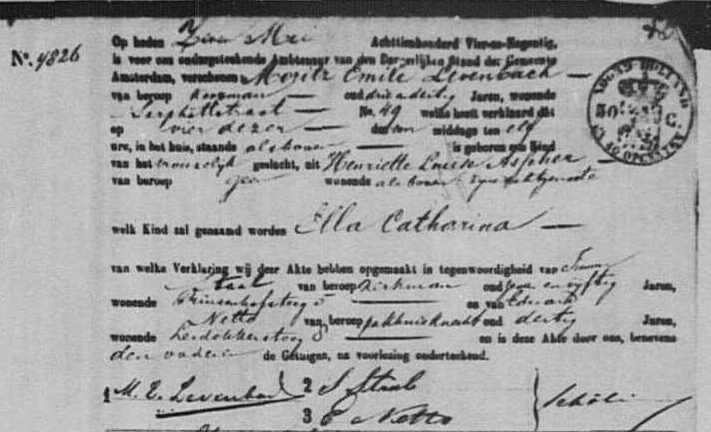 No. 4826
Op heden Zeven Mei Achttienhonderd Vier-en-Negentig,
is voor ons ondergeteekende Ambtenaar van den Burgerlijken Stand der Gemeente
Amsterdam, verscheen Moritz Emile Levenbach
van beroep koopman oud drie en dertig Jaren, wonende
Sarphatistraat No. 49 welke heeft verklaard dat
op vier dezer des middags ten elf
ure, in het huis, staande als boven is geboren een Kind
van het vrouwelijk geslacht, uit Henriette Louise Asscher
van beroep geen wonende als boven zijne echtgenoote
welk Kind zal genaamd worden Ella Catharina
van welke Verklaring wij deze Akte hebben opgemaakt in tegenwoordigheid van
Staal van beroep oud en vijftig Jaren,
wonende Prinsenhofsteeg 5 en van Eduard
Netto van beroep pakhuisknecht oud dertig Jaren,
wonende en is deze Akte door ons, benevens
den vader de Getuigen, na voorlezing onderteekend.
1 M. E. Levenbach 2 S Staal
3 E Netto
NOORD-HOLLAND
50 C.